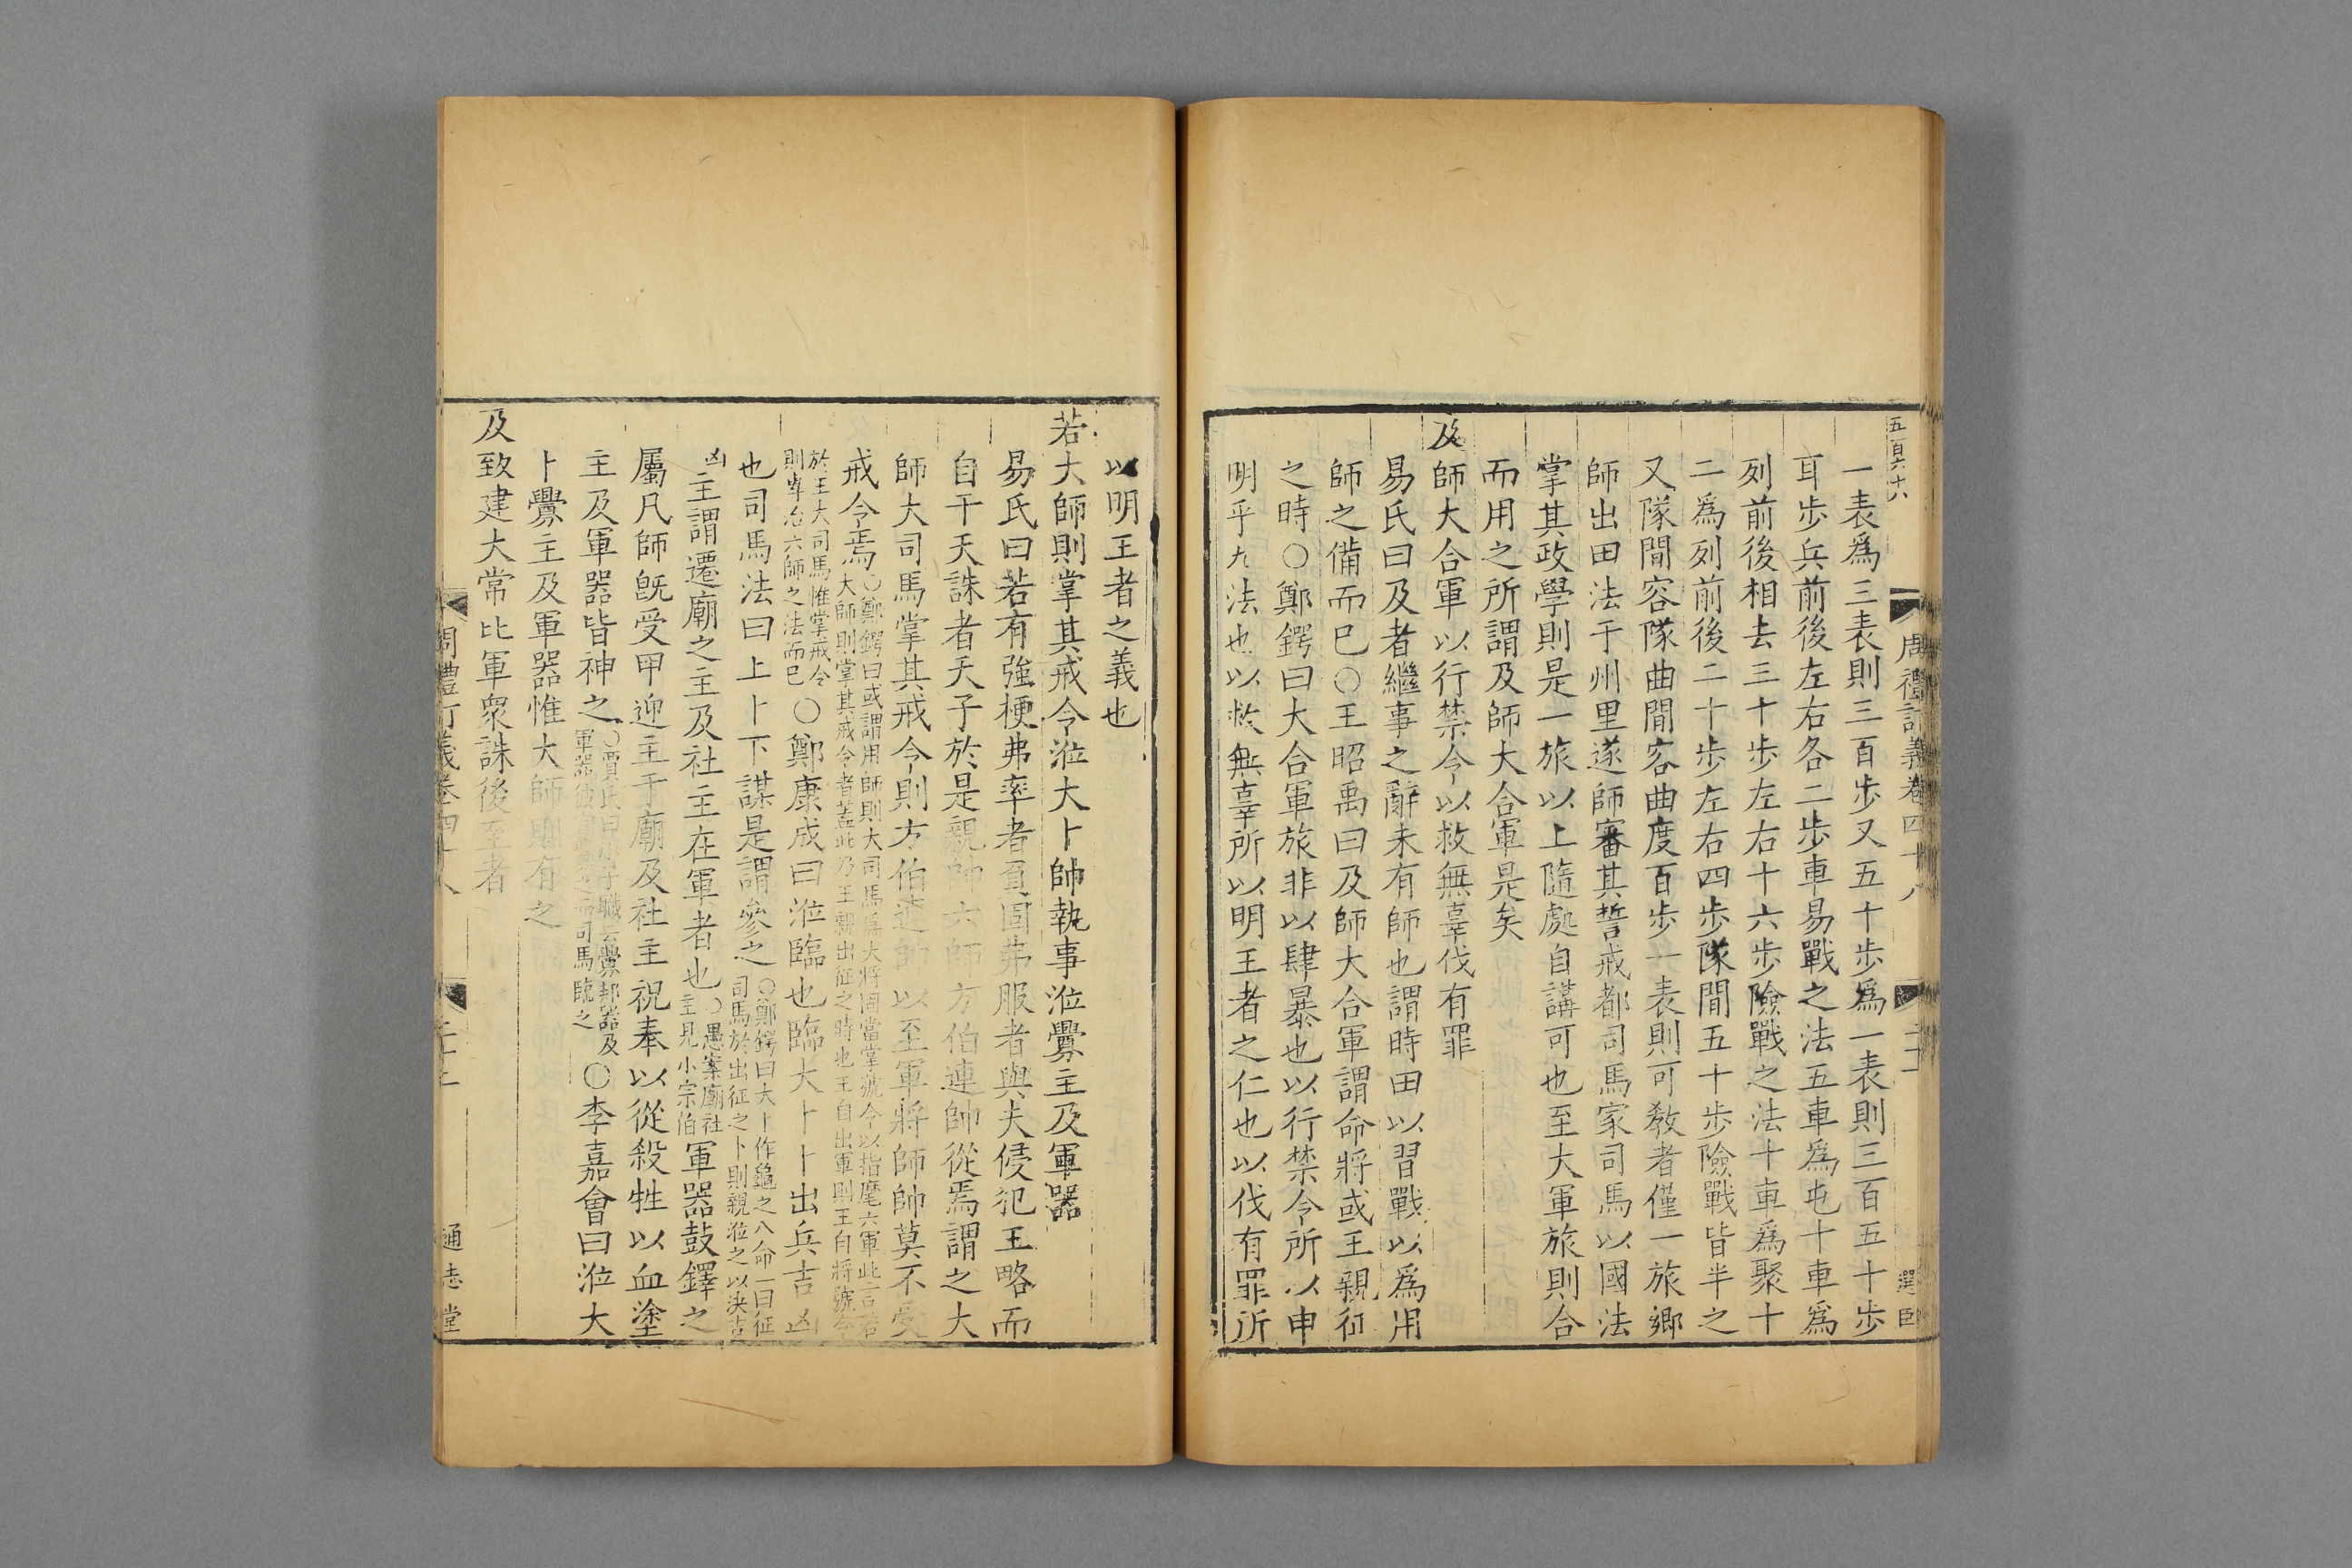 五百六十八
周禮訂義卷四十八
一表爲三表則三百步又五十步爲一表則三百五十步
耳步兵前後左右各二步車易戰之法五車爲屯十車爲
列前後相去三十步左右十六步險戰之法十車爲聚十
二爲列前後二十步左右四步隊間五十步險戰皆半之
又隊間容隊曲間容曲度百步一表則可敎者僅一旅鄉
師出田法于州里遂師審其誓戒都司馬家司馬以國法
掌其政學則是一旅以上隨處自講可也至大軍旅則合
而用之所謂及師大合軍是矣
及師大合軍以行禁令以救無辜伐有罪
易氏曰及者繼事之辭未有師也謂時田以習戰以爲用
師之備而已○王昭禹曰及師大合軍謂命將或王親征
之時○鄭鍔曰大合軍旅非以肆暴也以行禁令所以申
明乎九法也以救無辜所以明王者之仁也以伐有罪所
以明王者之義也
若大師則掌其戒令涖大卜帥執事涖釁主及軍器
易氏曰若有強梗弗率者負固弗服者與夫侵犯王略而
自干天誅者天子於是親帥六師方伯連帥從焉謂之大
師大司馬掌其戒令則方伯連帥以至軍將師帥莫不受
戒令焉○鄭鍔曰或謂用師則大司馬爲大將固當掌號令以指麾六軍此言若
大師則掌其戒令者蓋此乃王親出征之時也王自出軍則王自將號令
於王大司馬惟掌戒令
則率治六師之法而已○鄭康成曰涖臨也臨大卜卜出兵吉凶
也司馬法曰上卜下謀是謂參之○鄭鍔曰大卜作龜之八命一曰征
司馬於出征之卜則親涖之以決吉
凶主謂遷廟之主及社主在軍者也○愚案廟社
主見小宗伯軍器鼓鐸之
屬凡師旣受甲迎主于廟及社主祝奉以從殺牲以血塗
主及軍器皆神之○賈氏曰職云釁邦器及
軍器司馬臨之○李嘉會曰涖大
卜釁主及軍器惟大師則有之
及致建大常比軍衆誅後至者
通志堂